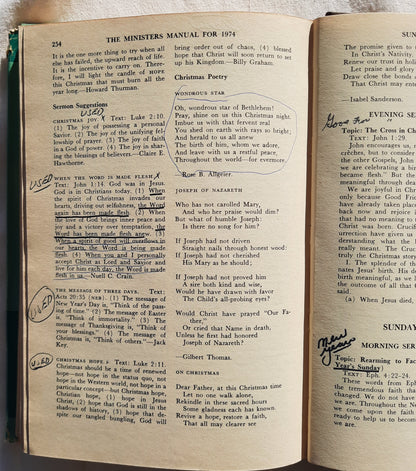 254
THE MINISTERS MANUAL FOR 1974
It is the one more thing to try when all
else has failed, the upward reach of life.
It is the incentive to carry on. There-
fore, I will light the candle of HOPE
this Christmas that must burn all the
year long—Howard Thurman.
Sermon Suggestions
USED
CHRISTMAS JOY X Text: Luke 2:10.
(1) The joy of possessing a personal
Savior. (2) The joy of the unifying fel-
lowship of prayer. (3) The joy of faith
in a God of power. (4) The joy in shar-
ing the blessings of believers.—Claire E.
Hawthorne.
USED
WHEN THE WORD IS MADE FLESH X
Text: John 1:14. God was in Jesus.
God is in Christians today. (1) When
the spirit of Christmas invades our
hearts, driving out selfishness, the Word
again has been made flesh. (2) When
the love of God brings inner peace and
joy and a victory over temptation, the
Word has been made flesh anew. (3)
When a spirit of good will overflows in
our hearts, the Word is being made
flesh. (4) When you and I personally
accept Christ as Lord and Savior and
live for him each day, the Word is made
flesh in us.—Nuell C. Crain.
USED
THE MESSAGE OF THREE DAYS. Text:
Acts 20:35 (NEB). (1) The message of
New Year's Day is, "Think of the pass-
ing of time." (2) The message of Easter
is "Think of immortality." (3) The
message of Thanksgiving is, "Think of
your blessings." (4) The message of
Christmas is, "Think of others."—Jack
Key.
USED
CHRISTMAS HOPE Text: Luke 2:11.
Christmas should be a time of renewed
hope—not hope in the status quo, not
hope in the Western world, not hope in a
particular concept—but Christmas hope,
Christian hope, (1) hope in Jesus
Christ, (2) hope that God is still in the
shadows of history, (3) hope that de-
spite our tangled bungling, God will
bring order out of chaos, (4) blessed
hope that Christ will soon return to set
up his Kingdom.—Billy Graham.
Christmas Poetry
WONDROUS STAR
Oh, wondrous star of Bethlehem!
Pray, shine on us this Christmas night.
Imbue us with that forever zeal
You shed on earth with rays so bright;
And herald to us all anew
The birth of him, whom we adore,
And leave with us a restful peace,
Throughout the world—for evermore.
—Rose B. Allgeier.
JOSEPH OF NAZARETH
Who has not carolled Mary,
And who her praise would dim?
But what of humble Joseph:
Is there no song for him?
If Joseph had not driven
Straight nails through honest wood:
If Joseph had not cherished
His Mary as he should;
If Joseph had not proved him
A sire both kind and wise,
Would he have drawn with favor
The Child's all-probing eyes?
Would Christ have prayed "Our Fa-
ther,"
Or cried that Name in death,
Unless he first had honored
Joseph of Nazareth?
—Gilbert Thomas.
ON CHRISTMAS
Dear Father, at this Christmas time
Let no one walk alone,
Rekindle in these sacred hours
Some gladness each has known.
Revive a hope, restore a faith,
That all may clearer see
The promise given to
In Christ's Nativity.
Renew our trust in holi
Let praise and glory
Draw close the bonds
That Christ may ent
—Isabel Sanderson.
EVENING SE
Topic: The Cross in Ch
TEXT: John 1:29.
John encourages us,
crèche, but to consider
the other Gospels, John
we are celebrating a bi
became flesh." But the
meaningful through dea
We are joyful in Chr
only because Good Frid
have already taken place
back now and rejoice i
that had no meaning to m
Christ was born. Crucifi
rection have given us
understanding what the
truly the Christmas story
I. The splendor of th
nates Jesus' birth. His de
birth meaningful, as we
the outcome of all that C
said.
(a) When Jesus died,
SUNDA
New
Years
MORNING SER
Topic: Rearming to Fac
Year's Sunday)
TEXT: Eph. 4:22-24.
These words from Eph
the tremendous faith tha
changed. We do not hav
we are. Throughout the N
we come upon the faith
ready to help us to becom
we are.